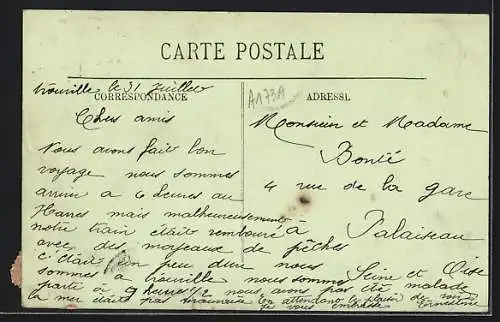 CARTE POSTALE
CORRESPONDANCE
ADRESSE
A173A
Trouville le 31 Juillet
Chers amis
Nous avons fait bon
voyage nous sommes
arrivé a 6 heures au
Havres mais malheureusement
notre train était rembouré
avec des morceaux de pêches
c'était un peu dur nous
sommes a trouville nous sommes
parti à 9 heures 1/2 nous avons pas été malade
la mer était pas mauvaise En attendant le plaisir de vous
je vous embrasse Ernestine
Monsieur et Madame
Bonté
4 rue de la gare
à
Palaiseau
Seine et Oise